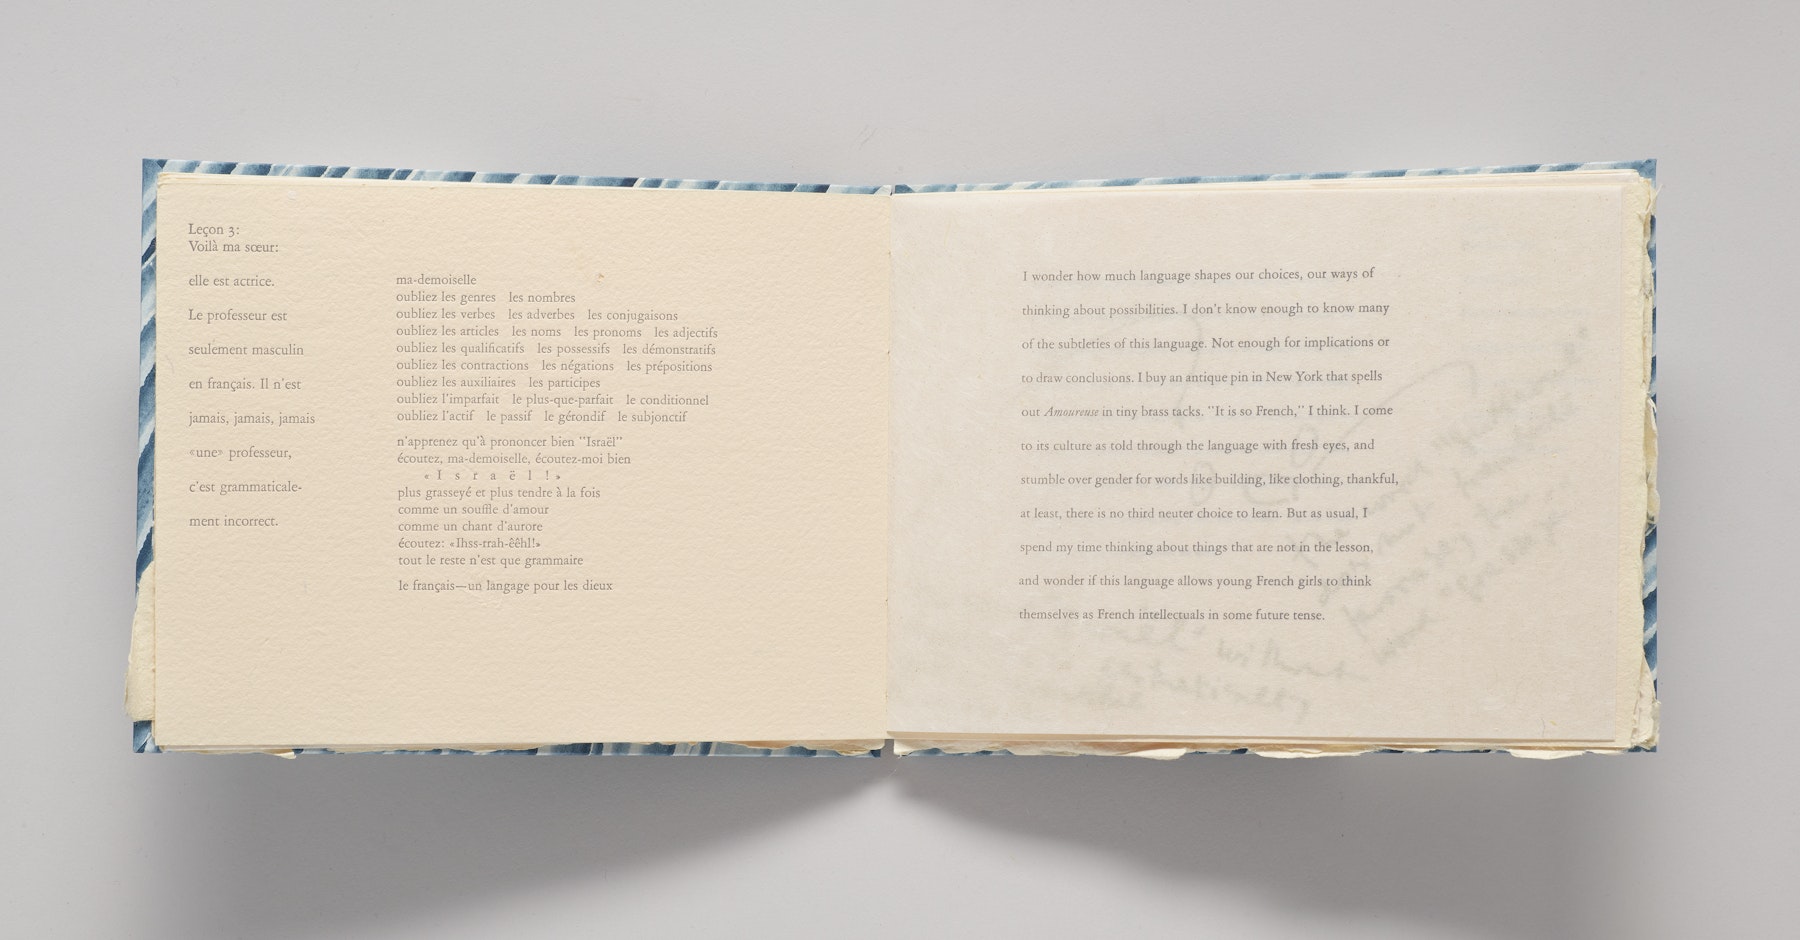 Leçon 3:
Voilà ma sœur:
elle est actrice.
Le professeur est
seulement masculin
en français. Il n'est
jamais, jamais, jamais
«une» professeur,
c'est grammaticale-
ment incorrect.
ma-demoiselle
oubliez les genres les nombres
oubliez les verbes les adverbes les conjugaisons
oubliez les articles les noms les pronoms les adjectifs
oubliez les qualificatifs les possessifs les démonstratifs
oubliez les contractions les négations les prépositions
oubliez les auxiliaires les participes
oubliez l'imparfait le plus-que-parfait le conditionnel
oubliez l'actif le passif le gérondif le subjonctif
n'apprenez qu'à prononcer bien "Israël"
écoutez, ma-demoiselle, écoutez-moi bien
«I s r a ë l !»
plus grasseyé et plus tendre à la fois
comme un souffle d'amour
comme un chant d'aurore
écoutez: «Ihss-rrah-êêhl!»
tout le reste n'est que grammaire
le français—un langage pour les dieux
I wonder how much language shapes our choices, our ways of
thinking about possibilities. I don't know enough to know many
of the subtleties of this language. Not enough for implications or
to draw conclusions. I buy an antique pin in New York that spells
out Amoureuse in tiny brass tacks. "It is so French," I think. I come
to its culture as told through the language with fresh eyes, and
stumble over gender for words like building, like clothing, thankful,
at least, there is no third neuter choice to learn. But as usual, I
spend my time thinking about things that are not in the lesson,
and wonder if this language allows young French girls to think
themselves as French intellectuals in some future tense.
without